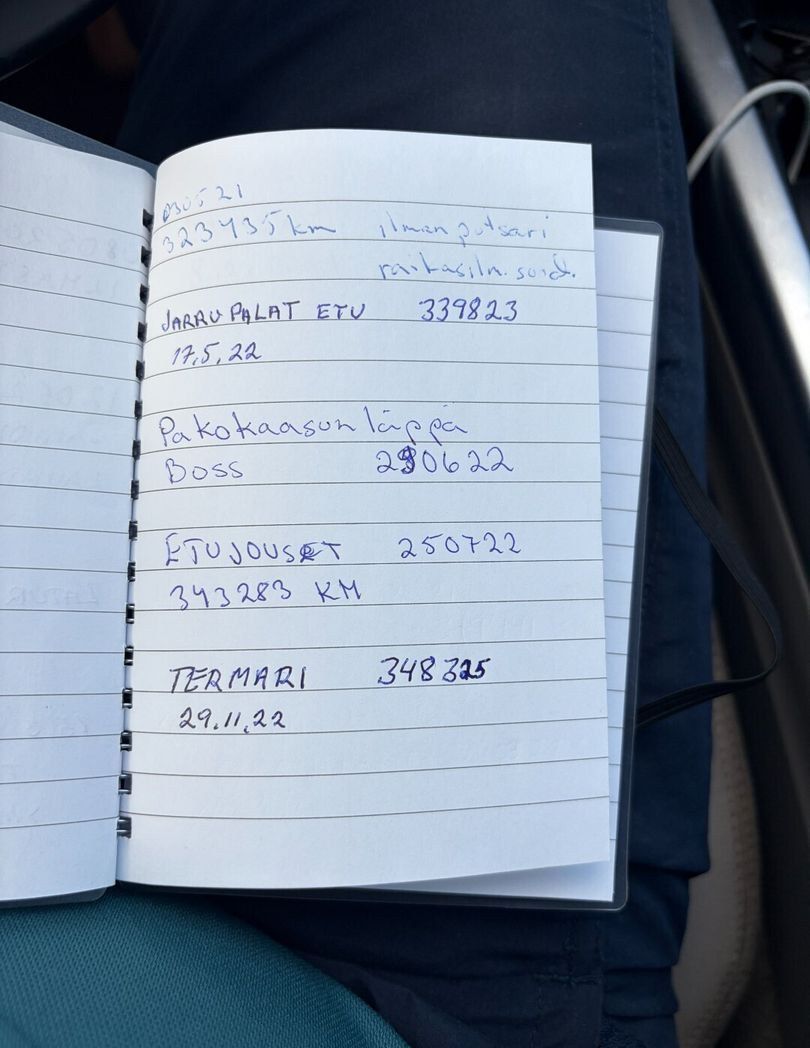 030521
323435 km ilmanputsari
raikasilm. suod.
JARRUPALAT ETU 339823
17.5.22
Pakokaasun läppä
Boss 290622
ETUJOUSET 250722
343283 KM
TERMARI 348325
29.11.22